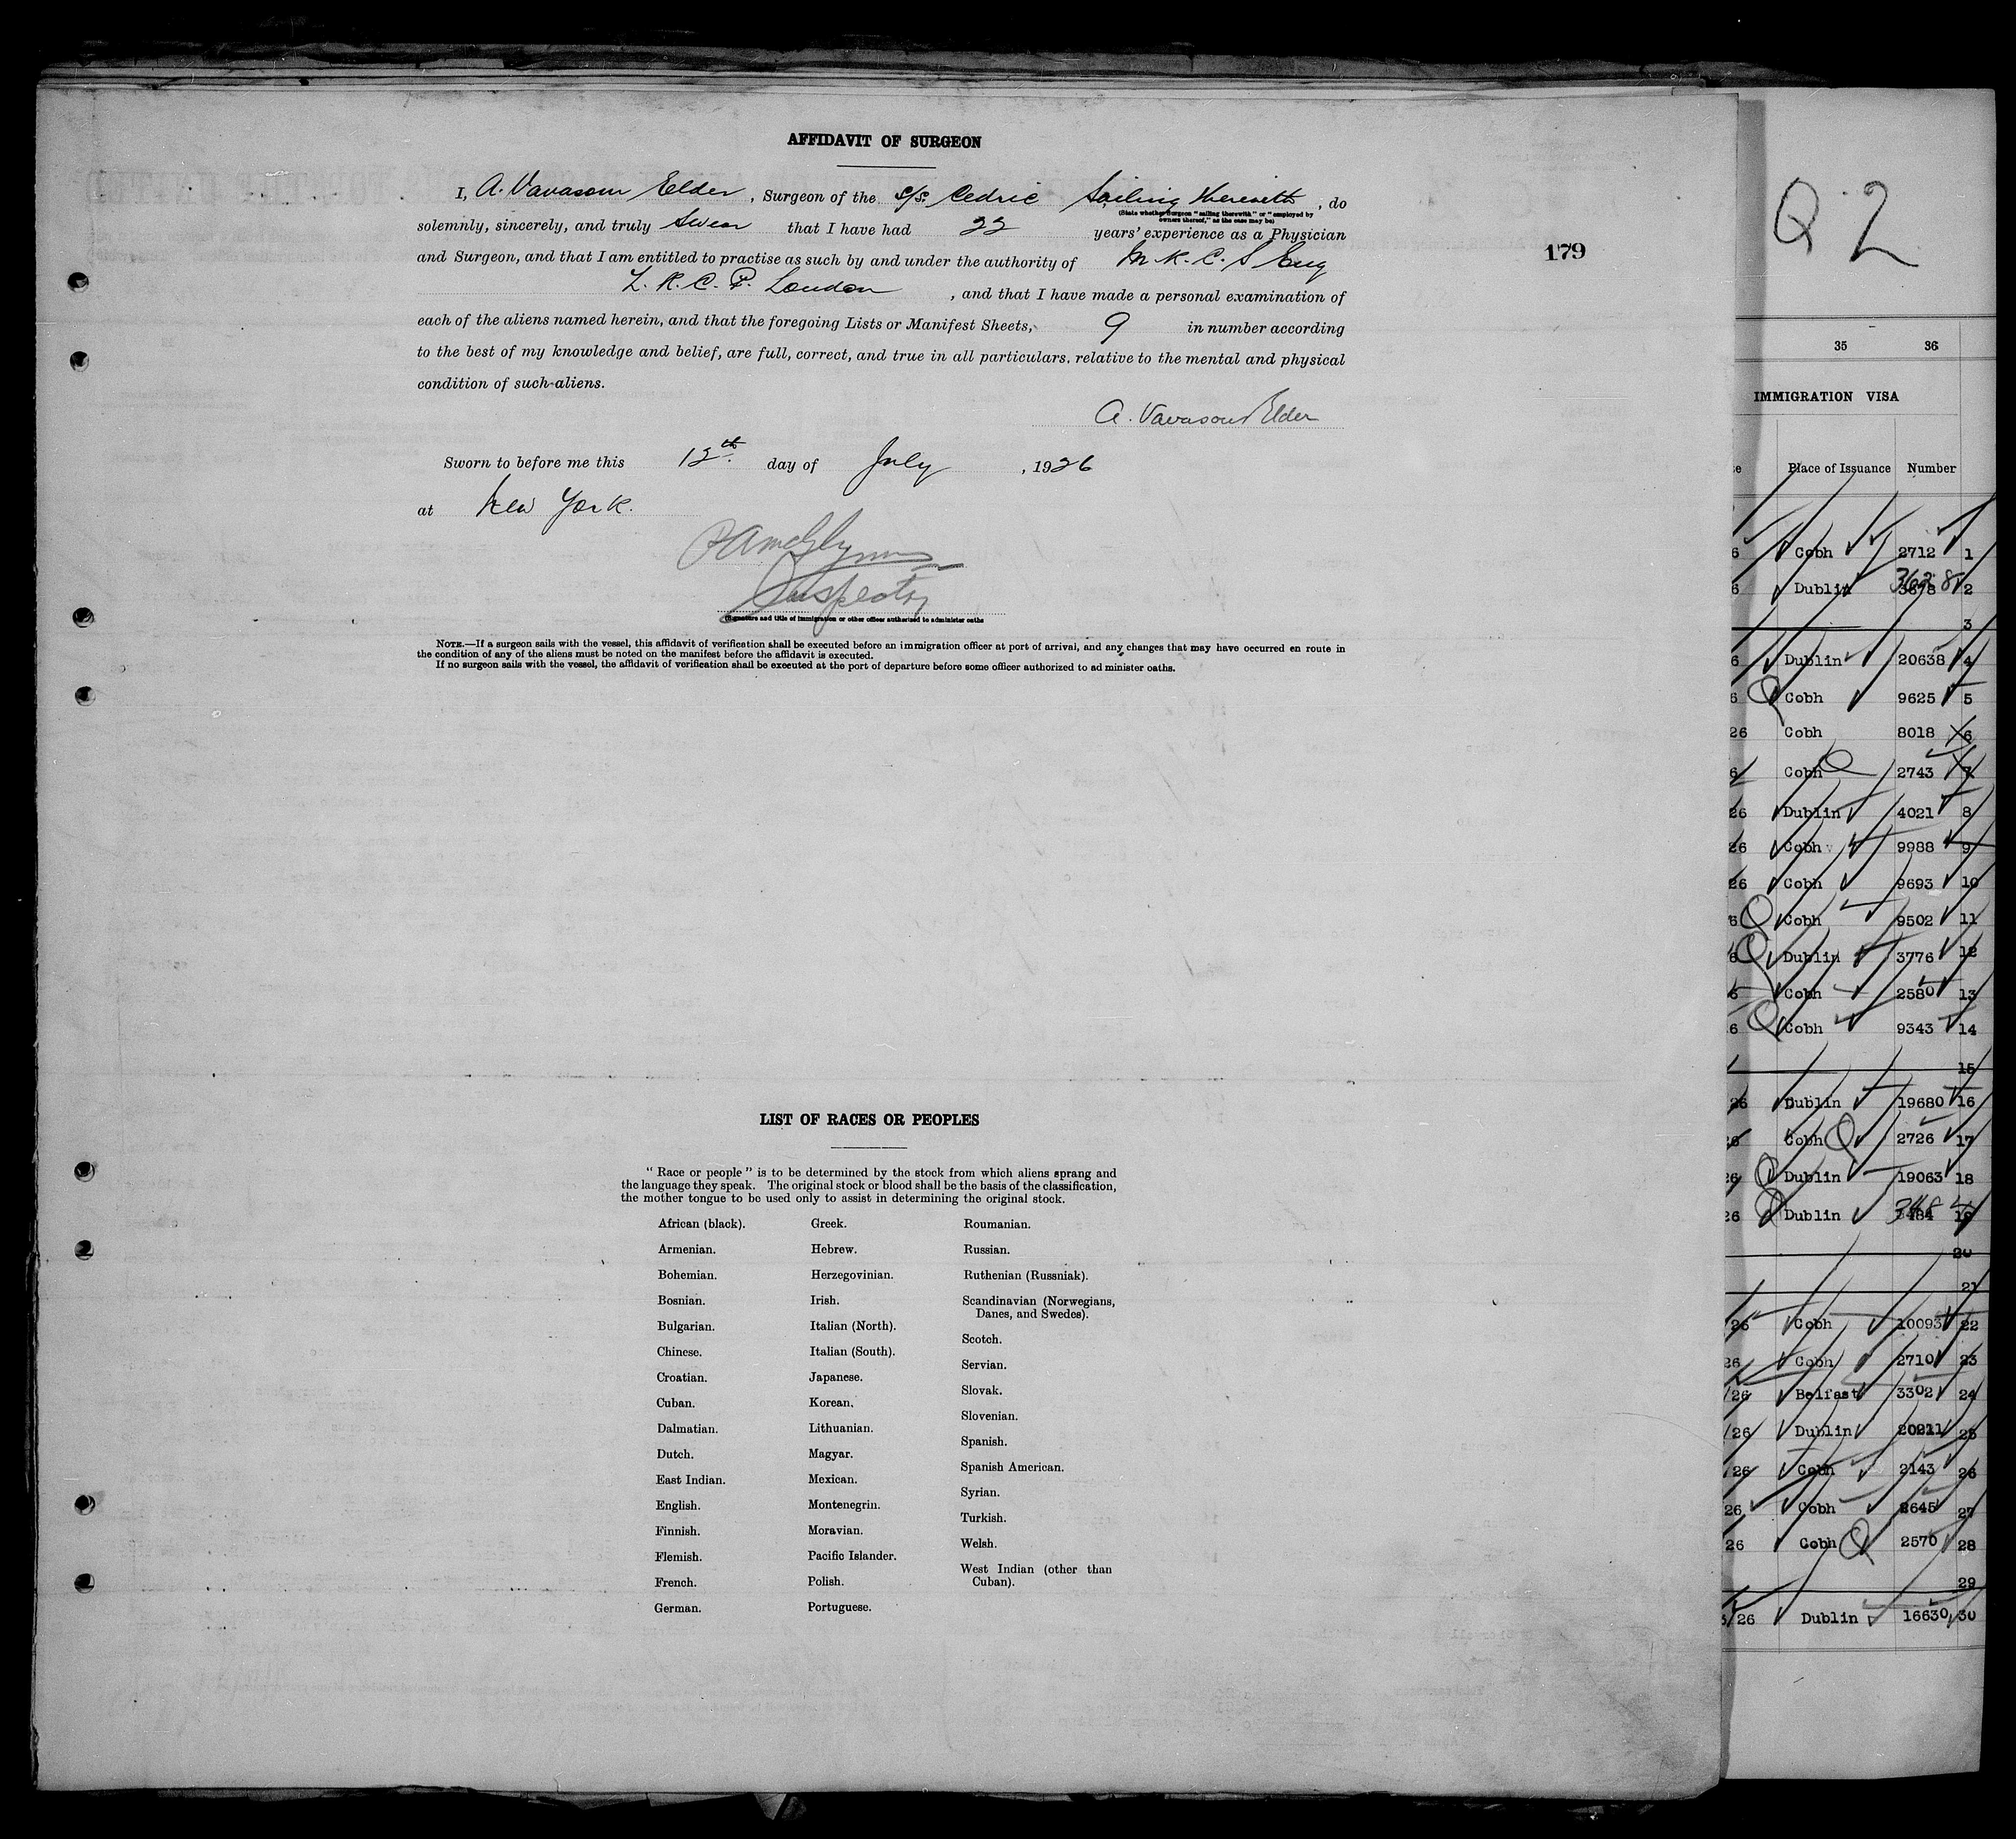 AFFIDAVIT OF SURGEON
I, A. Vavasour Elder, Surgeon of the S/S. Cedric Sailing therewith, do
(State whether Surgeon "sailing therewith" or "employed by
owners thereof," as the case may be)
solemnly, sincerely, and truly Swear that I have had 22 years' experience as a Physician
and Surgeon, and that I am entitled to practise as such by and under the authority of M.R.C.S Eng
L.R.C.P. London, and that I have made a personal examination of
each of the aliens named herein, and that the foregoing Lists or Manifest Sheets, 9 in number according
to the best of my knowledge and belief, are full, correct, and true in all particulars, relative to the mental and physical
condition of such aliens.
A. Vavasour Elder
Sworn to before me this 12th. day of July, 1926
at New York.
Inspector
(Signature and title of immigration or other officer authorised to administer oaths
NOTE.—If a surgeon sails with the vessel, this affidavit of verification shall be executed before an immigration officer at port of arrival, and any changes that may have occurred en route in
the condition of any of the aliens must be noted on the manifest before the affidavit is executed.
If no surgeon sails with the vessel, the affidavit of verification shall be executed at the port of departure before some officer authorized to administer oaths.
179
LIST OF RACES OR PEOPLES
"Race or people" is to be determined by the stock from which aliens sprang and
the language they speak. The original stock or blood shall be the basis of the classification,
the mother tongue to be used only to assist in determining the original stock.
African (black).
Armenian.
Bohemian.
Bosnian.
Bulgarian.
Chinese.
Croatian.
Cuban.
Dalmatian.
Dutch.
East Indian.
English.
Finnish.
Flemish.
French.
German.
Greek.
Hebrew.
Herzegovinian.
Irish.
Italian (North).
Italian (South).
Japanese.
Korean.
Lithuanian.
Magyar.
Mexican.
Montenegrin.
Moravian.
Pacific Islander.
Polish.
Portuguese.
Roumanian.
Russian.
Ruthenian (Russniak).
Scandinavian (Norwegians,
Danes, and Swedes).
Scotch.
Servian.
Slovak.
Slovenian.
Spanish.
Spanish American.
Syrian.
Turkish.
Welsh.
West Indian (other than
Cuban).
Q2
35 36
IMMIGRATION VISA
Place of Issuance Number
6 Cobh 2712 1
6 Dublin 3628 2
3
6 Dublin 20638 4
6 Cobh 9625 5
26 Cobh 8018 6
6 Cobh 2743 7
26 Dublin 4021 8
26 Cobh 9988 9
26 Cobh 9693 10
6 Cobh 9502 11
6 Dublin 3776 12
6 Cobh 2580 13
6 Cobh 9343 14
15
26 Dublin 19680 16
26 Cobh 2726 17
26 Dublin 19063 18
26 Dublin 3484 19
20
21
26 Cobh 10093 22
26 Cobh 2710 23
/26 Belfast 3302 24
/26 Dublin 25
/26 Cobh 2143 26
26 Cobh 2645 27
26 Cobh 2570 28
29
/26 Dublin 16630 30